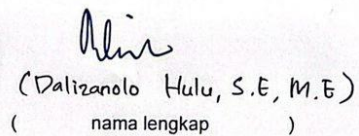 (Dalizanolo Hulu, S.E, M.E)
( nama lengkap )